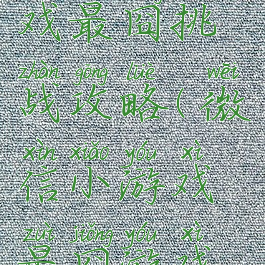 戏最囧挑
zhàn gōng lüè wēi
战攻略(微
xìn xiǎo yóu xì
信小游戏
zuì jiǒng yóu xì
最囧游戏